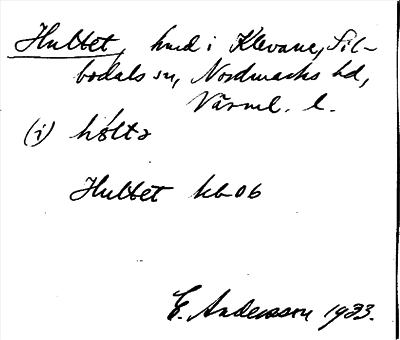 Hultet, hmd i Klevane, Sil-
bodals sn, Nordmarks hd,
Värml. l.
(i) hǿltə
Hultet kb 06
E. Andersson 1933.